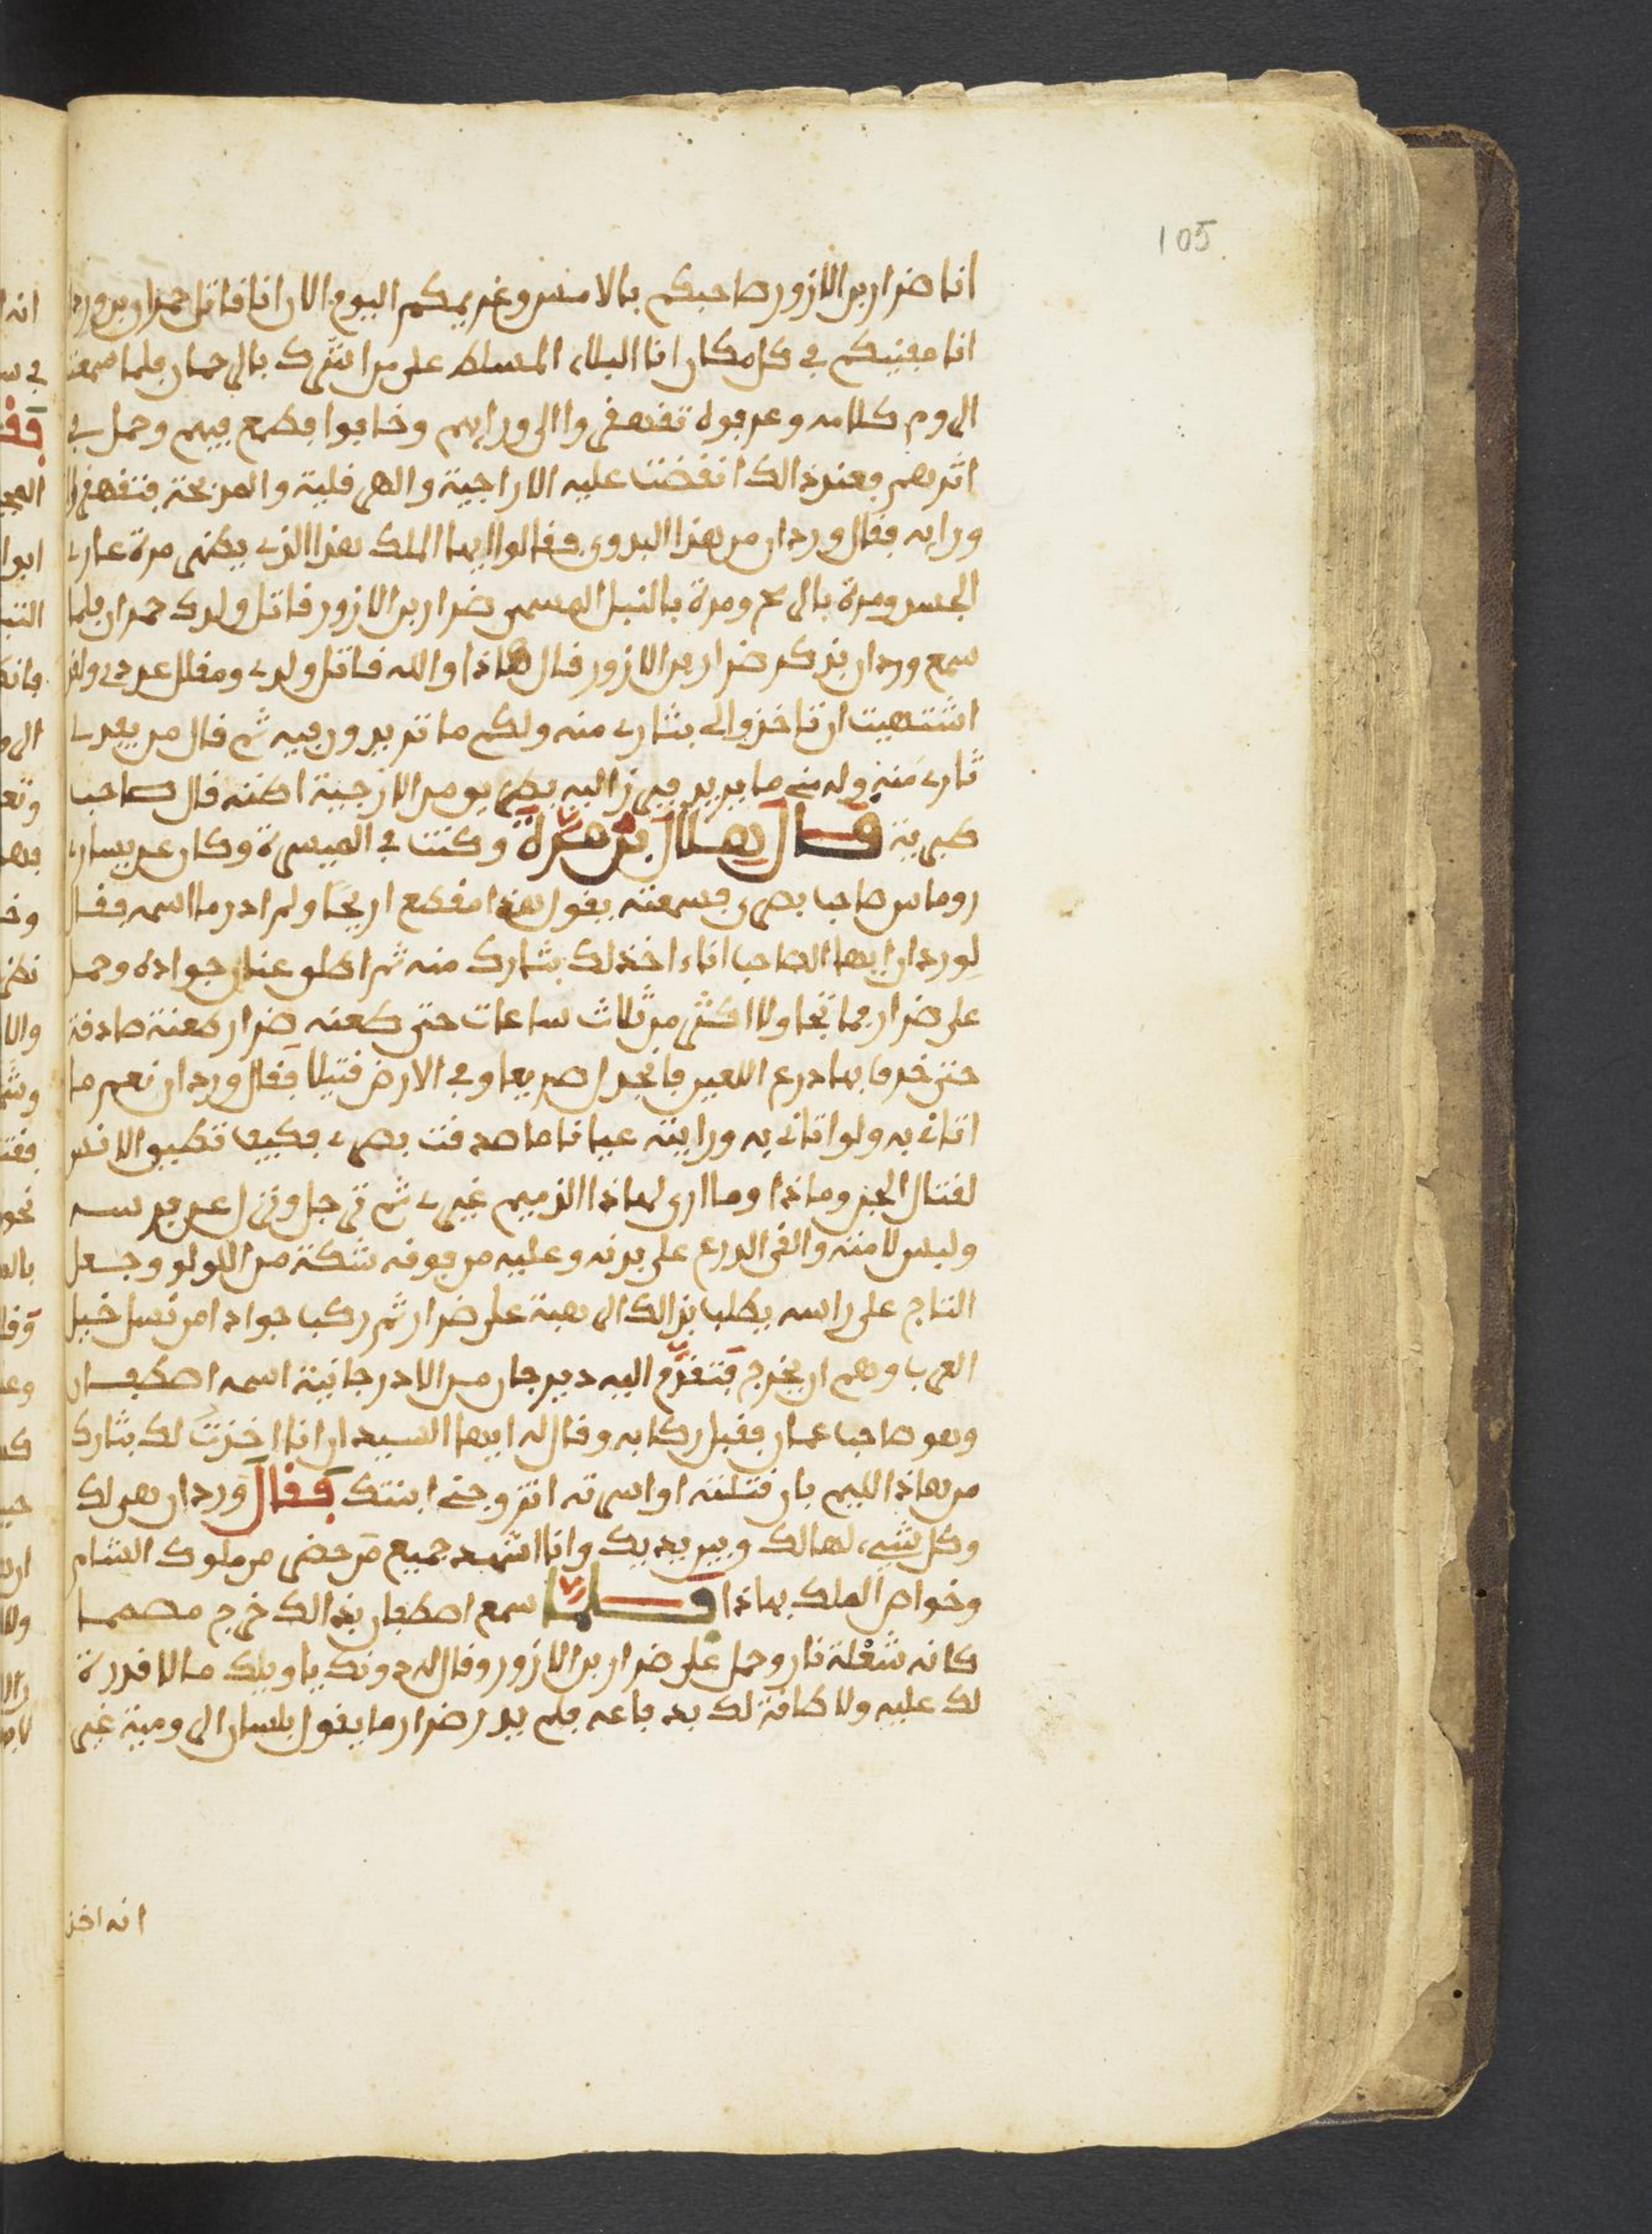 105
انا ضرار بن الازور صاحبكم بالامس وغريمكم اليوم الان انا قاتل حمران بن وردان
انا مفنيكم في كل مكان انا البلاء المسلط على من اشرك بالرحمان فلما سمعت
الروم كلامه وعرفوه تقهقروا الى ورايهم وخافوا فطمع فيهم وحمل في
اثرهم فعند ذالك انفضت عليه الاراجية والهرقلية والمزبحة فتقهقر الى
ورايه فقال وردان من هذا البدوي فقالوا ايها الملك هذا الذي يظهر مرة عاري
الجسد ومرة بالرمح ومرة بالنبل المسمى ضرار بن الازور قاتل ولدك حمران فلما
سمع وردان بذكر ضرار بن الازور قال هاذا والله قاتل ولدي ومقلل عددي ولقد
اشتهيت ان تاخذوا لي بثاري منه ولكم ما تريدون فيه ثم قال من ياخذ لي
ثاري منه وله مني ما يريد فبرز اليه بطريق من الازجية اظنه قال صاحب
طبرية قال هلال بن مرة وكنت في الميسرة وكان عن يساري
روماس صاحب بصرى فسمعته يقول هذا مقطع اريحا ولم ادر ما اسمه فقال
لوردان ايها الصاحب اناء اخذ لك بثارك منه ثم اطلق عنان جواده وحمل
على ضرار فما تجاولا اكثر من ثلاث ساعات حتى طعنه ضرار طعنة صادقة
حتى خرق بها درع اللعين فانجدل صريعا وفي الارض قتيلا فقال وردان نعم ما
اتاني به ولو اتاني به ورايته عيانا ما صدقت بصري فكيف تطيق الانس
لقتال الجن وماذا وما ارى لهاذا الذميم غيري ثم ترجل ونزل عن فرسه
ولبس لامته والقى الدرع على بدنه وعليه من فوقه شكة من اللولو وجعل
التاج على راسه يطلب بذالك الرهبة على ضرار ثم ركب جوادا من نسل خيل
العرب وهم ان يخرج فتقدم اليه ديرجان من الادرجانية اسمه اصطفان
وهو صاحب عمان فقبل ركابه وقال له ايها السيد ان انا اخذت لك بثارك
من هاذا الليم بان قتلته او اسرته اتزوجني ابنتك فقال وردان هي لك
وكل شيء لها لك وبين يديك وانا اشهد جميع من حضر من ملوك الشام
وخواص الملك بهاذا فلما سمع اصطفان بذالك خرج مصمما
كانه شعلة نار وحمل على ضرار بن الازور وقال له دونك يا ويلك ما لا قدرة
لك عليه ولا طاقة لك بدفاعه فلم يدر ضرار ما يقول بلسان الرومية غير
انه اخذ